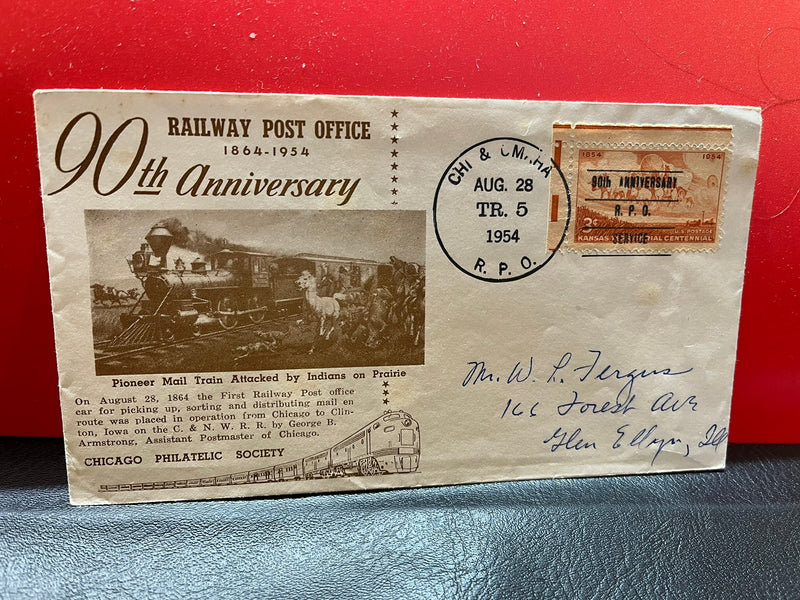 RAILWAY POST OFFICE
1864-1954
90th Anniversary
Pioneer Mail Train Attacked by Indians on Prairie
On August 28, 1864 the First Railway Post office
car for picking up, sorting and distributing mail en
route was placed in operation from Chicago to Clin-
ton, Iowa on the C. & N. W. R. R. by George B.
Armstrong, Assistant Postmaster of Chicago.
CHICAGO PHILATELIC SOCIETY
CHI & OMAHA
AUG. 28
TR. 5
1954
R. P. O.
1854 1954
90th ANNIVERSARY
R. P. O.
SERVICE
3¢ U.S. POSTAGE
KANSAS TERRITORIAL CENTENNIAL
Mr. W. L. Fergus
166 Forest Ave
Glen Ellyn, Ill